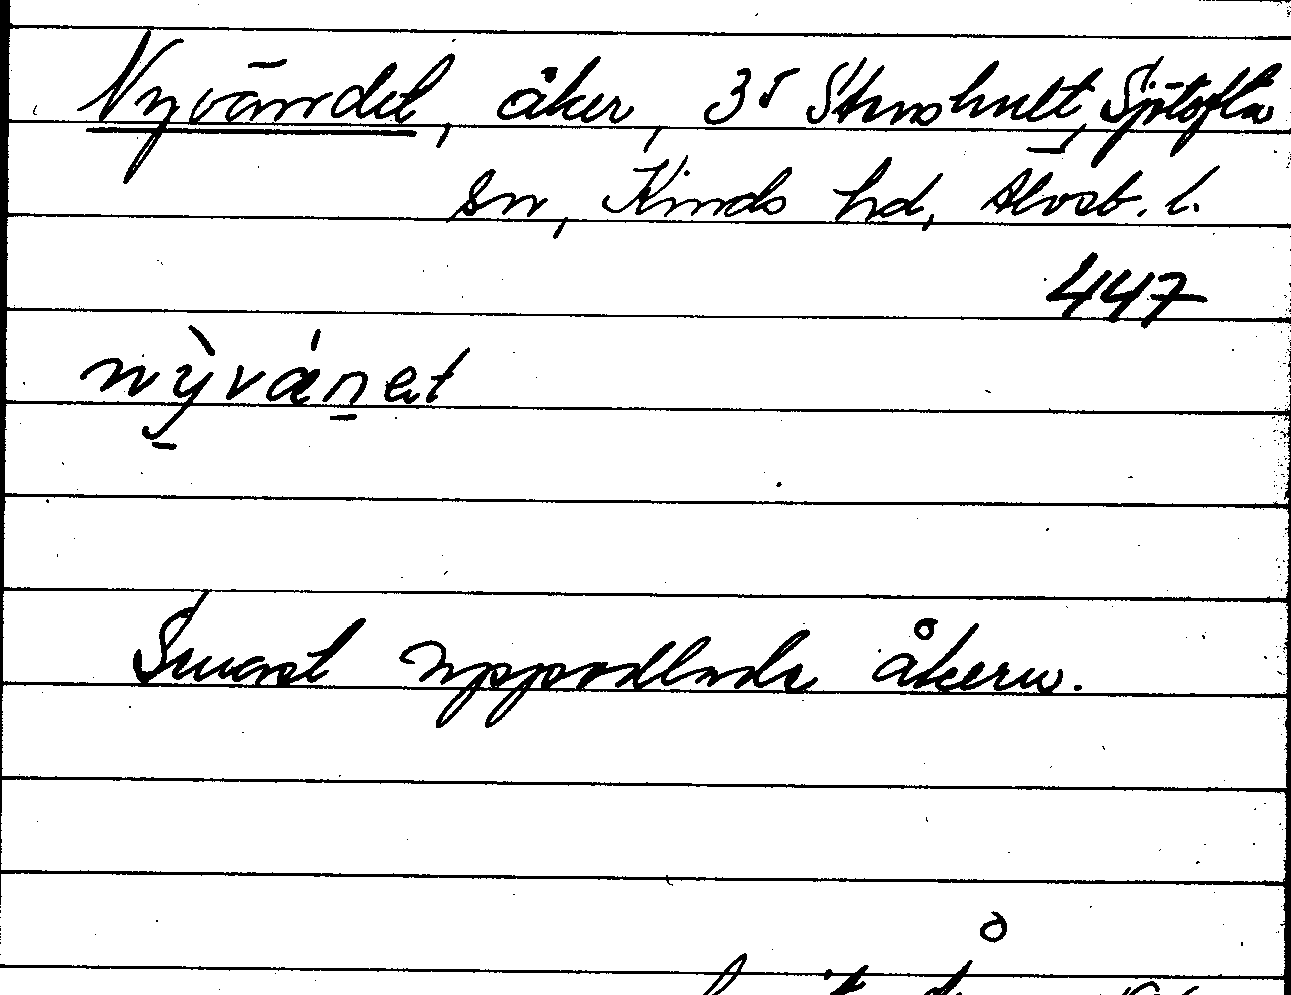 Nyvändet, åker, 35 Stenshult, Sjötofta
sn, Kinds hd, Älvsb. l.
447
nỳvǽn̲et
Senast uppodlade åkern.